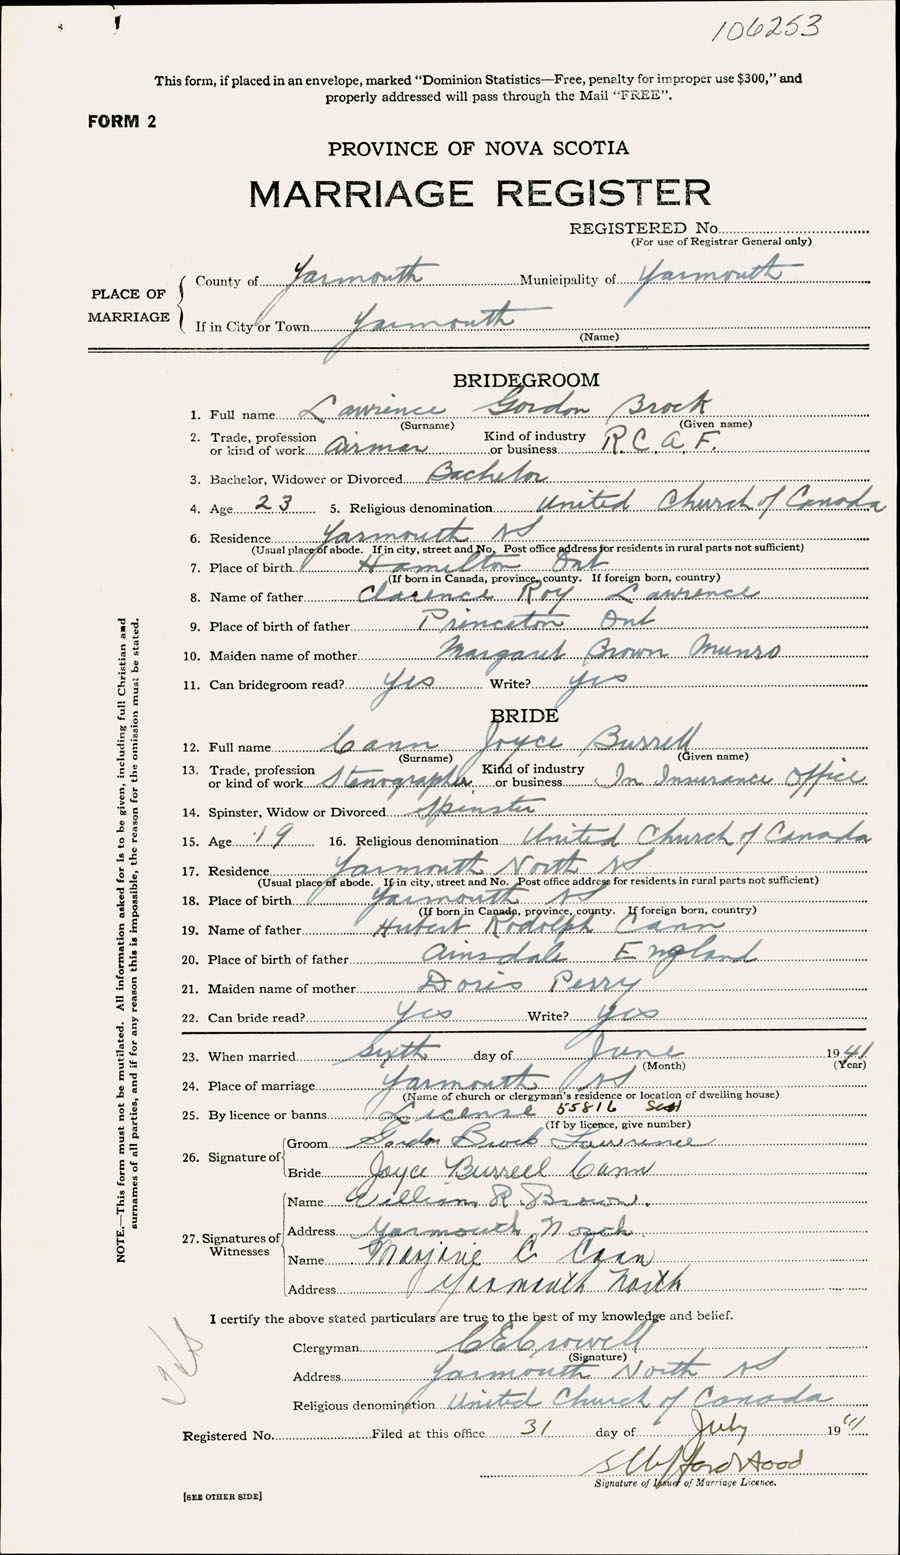 106253
This form, if placed in an envelope, marked "Dominion Statistics—Free, penalty for improper use $300," and
properly addressed will pass through the Mail "FREE".
FORM 2
PROVINCE OF NOVA SCOTIA
MARRIAGE REGISTER
REGISTERED No.
(For use of Registrar General only)
PLACE OF MARRIAGE
County of Yarmouth Municipality of Yarmouth
If in City or Town Yarmouth
(Name)
BRIDEGROOM
1. Full name Lawrence Gordon Brock
(Surname) (Given name)
2. Trade, profession or kind of work Airman Kind of industry or business R.C.A.F.
3. Bachelor, Widower or Divorced Bachelor
4. Age 23 5. Religious denomination United Church of Canada
6. Residence Yarmouth NS
(Usual place of abode. If in city, street and No. Post office address for residents in rural parts not sufficient)
7. Place of birth Hamilton Ont
(If born in Canada, province, county. If foreign born, country)
8. Name of father Clarence Roy Lawrence
9. Place of birth of father Princeton Ont
10. Maiden name of mother Margaret Brown Munro
11. Can bridegroom read? Yes Write? Yes
BRIDE
12. Full name Cann Joyce Burrell
(Surname) (Given name)
13. Trade, profession or kind of work Stenographer Kind of industry or business In Insurance Office
14. Spinster, Widow or Divorced Spinster
15. Age 19 16. Religious denomination United Church of Canada
17. Residence Yarmouth North NS
(Usual place of abode. If in city, street and No. Post office address for residents in rural parts not sufficient)
18. Place of birth Yarmouth NS
(If born in Canada, province, county. If foreign born, country)
19. Name of father Hubert Rodolph Cann
20. Place of birth of father Ainsdale England
21. Maiden name of mother Doris Perry
22. Can bride read? Yes Write? Yes
23. When married sixth day of June 1941
(Month) (Year)
24. Place of marriage Yarmouth NS
(Name of church or clergyman's residence or location of dwelling house)
25. By licence or banns License 55816
(If by licence, give number)
26. Signature of
Groom Gordon Brock Lawrence
Bride Joyce Burrell Cann
27. Signatures of Witnesses
Name William R. Brown.
Address Yarmouth North
Name Marjorie C Cann
Address Yarmouth North
I certify the above stated particulars are true to the best of my knowledge and belief.
Clergyman C E Crowell
(Signature)
Address Yarmouth North NS
Religious denomination United Church of Canada
Registered No. Filed at this office 31 day of July 1941
Signature of Issuer of Marriage Licence.
[SEE OTHER SIDE]
NOTE.—This form must not be mutilated. All information asked for is to be given, including full Christian and
surnames of all parties, and if for any reason this is impossible, the reason for the omission must be stated.